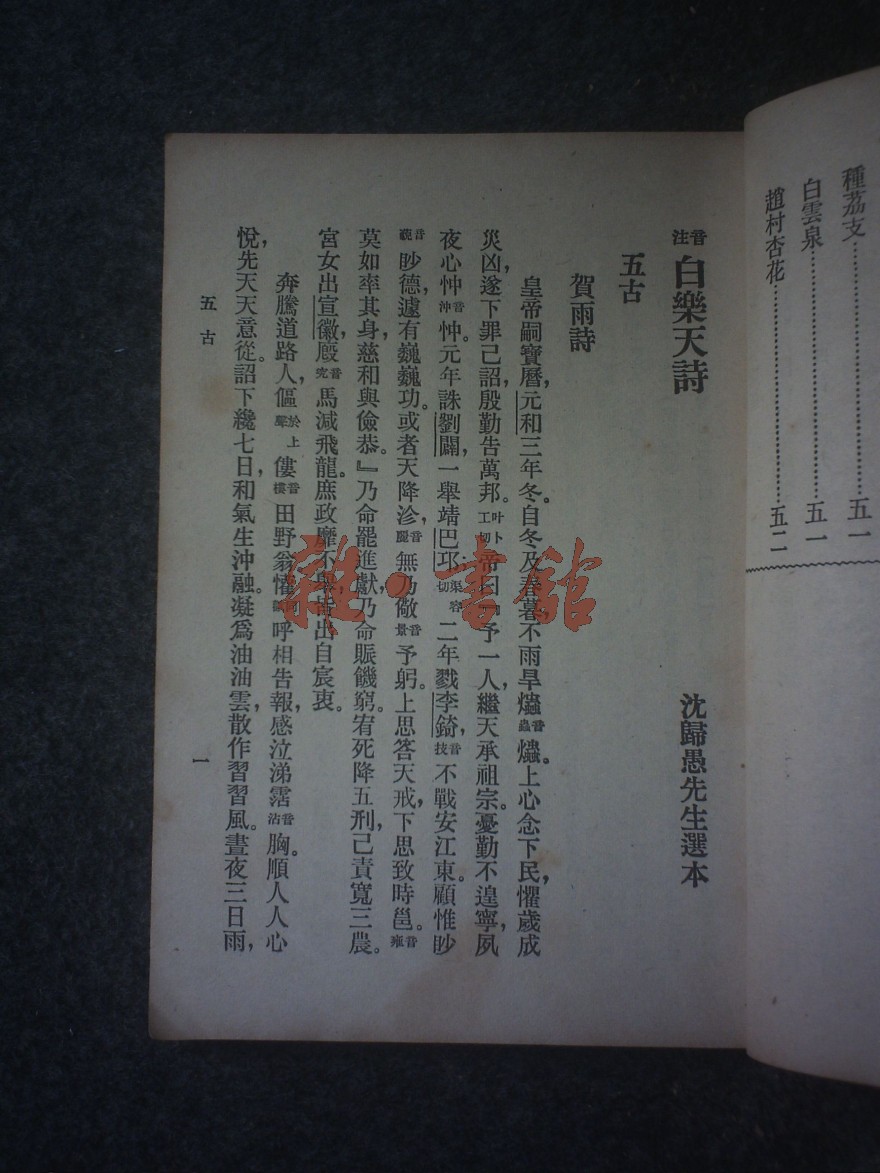 種荔支……………五一
白雲泉……………五一
趙村杏花……………五二
音注 白樂天詩 沈歸愚先生選本
五古
賀雨詩
皇帝嗣寶曆，元和三年冬。自冬及春暮，不雨旱爞音蟲爞。上心念下民，懼歲成
災凶，遂下罪己詔，殷勤告萬邦。叶卜工切帝曰『予一人，繼天承祖宗。憂勤不遑寧，夙
夜心忡音沖忡。元年誅劉闢，一舉靖巴邛渠容切。二年戮李錡，音技不戰安江東。顧惟眇
音藐眇德，遽有巍巍功。或者天降沴，音麗無乃儆音景予躬。上思答天戒，下思致時邕。音雍
莫如率其身，慈和與儉恭。』乃命罷進獻，乃命賑饑窮。宥死降五刑，己責寬三農。
宮女出宣徽，廄音究馬減飛龍。庶政靡不舉，皆出自宸衷。
奔騰道路人，傴於上聲僂音樓田野翁，懽呼相告報，感泣涕霑音沾胸。順人人心
悅，先天天意從。詔下纔七日，和氣生沖融。凝爲油油雲，散作習習風。晝夜三日雨，
五古
一
雜·書館